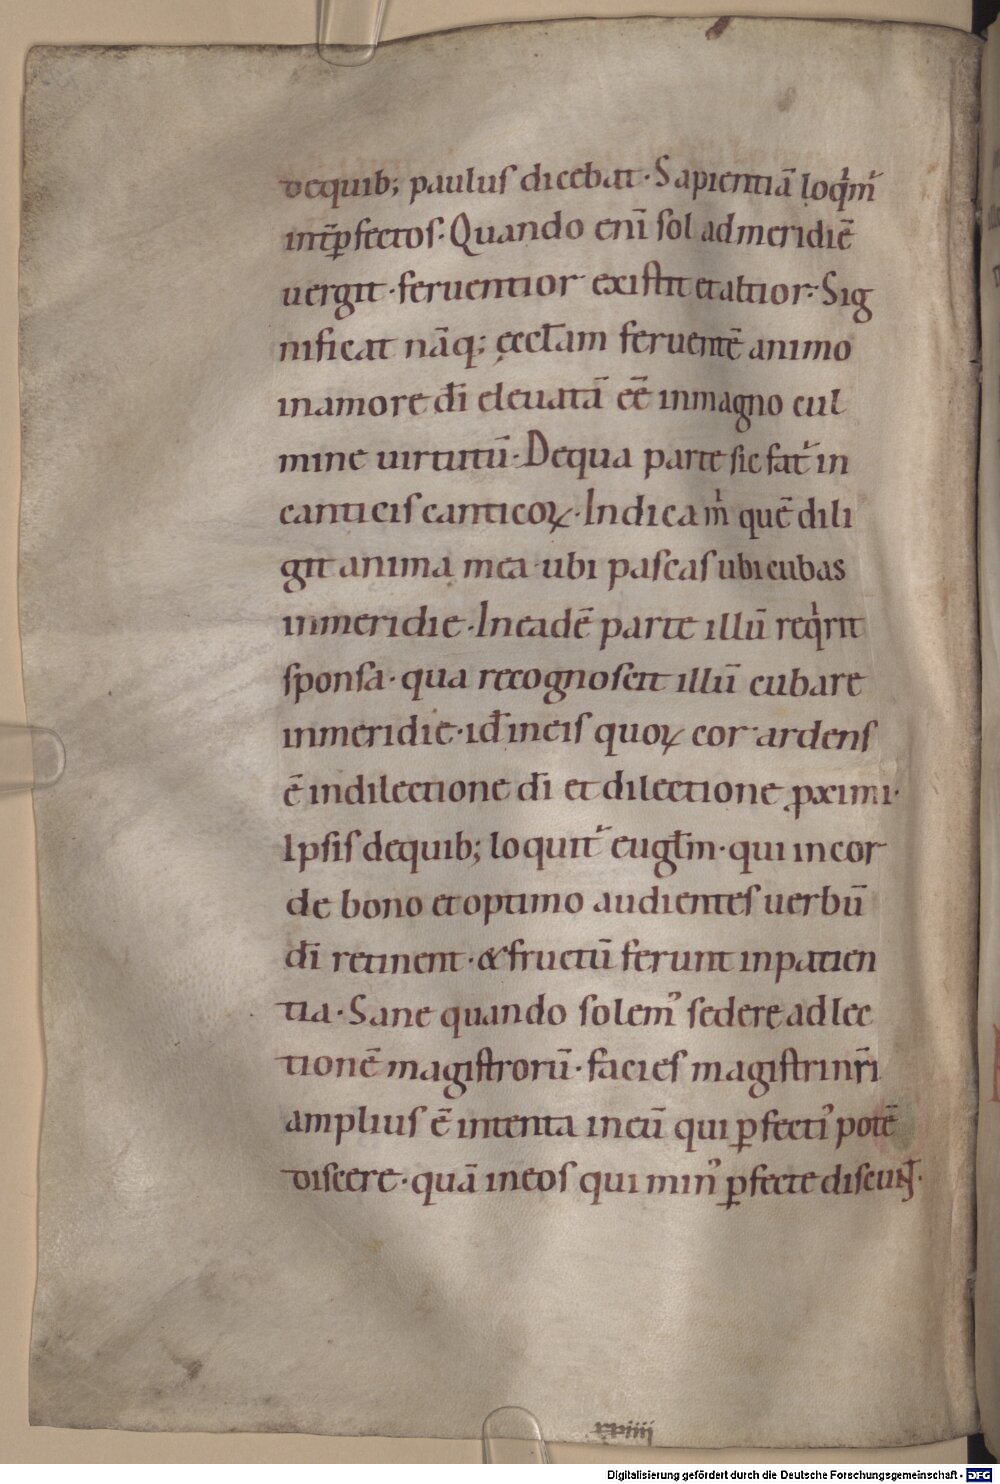 dequib; paulus dicebat · Sapientiā loq̇m᷑
int̄ ꝑfectos · Quando eni̅ sol ad meridiē
uergit · feruentior existit et altior · Sig
nificat nāq; ęcct̄am feruentē animo
in amore dī eleuatā eē in magno cul
mine uirtutū · De qua parte sic fat᷑ in
canticis canticoꝝ · Indica ṁ quē dili
git anima mea ubi pascas ubi cubas
in meridie · In eadē parte illū req̇rit
sponsa · qua recognoscit illū cubare
in meridie · id̄ in eis quoꝝ cor ardens
ē in dilectione dī et dilectione ꝓximi ·
Ipsis dequib; loquit᷑ eugl̄m · qui in cor
de bono et optimo audientes uerbū
dī retinent · & fructū ferunt in patien
tia · Sane quando solemꝰ sedere ad lec
tionē magistrorū · facies magistri nr̄i
amplius ē intenta in eū qui ꝑfectiꝰ potē
discere · quā in eos qui minꝰ ꝑfecte discunt ·
xviiii
Digitalisierung gefördert durch die Deutsche Forschungsgemeinschaft - DFG